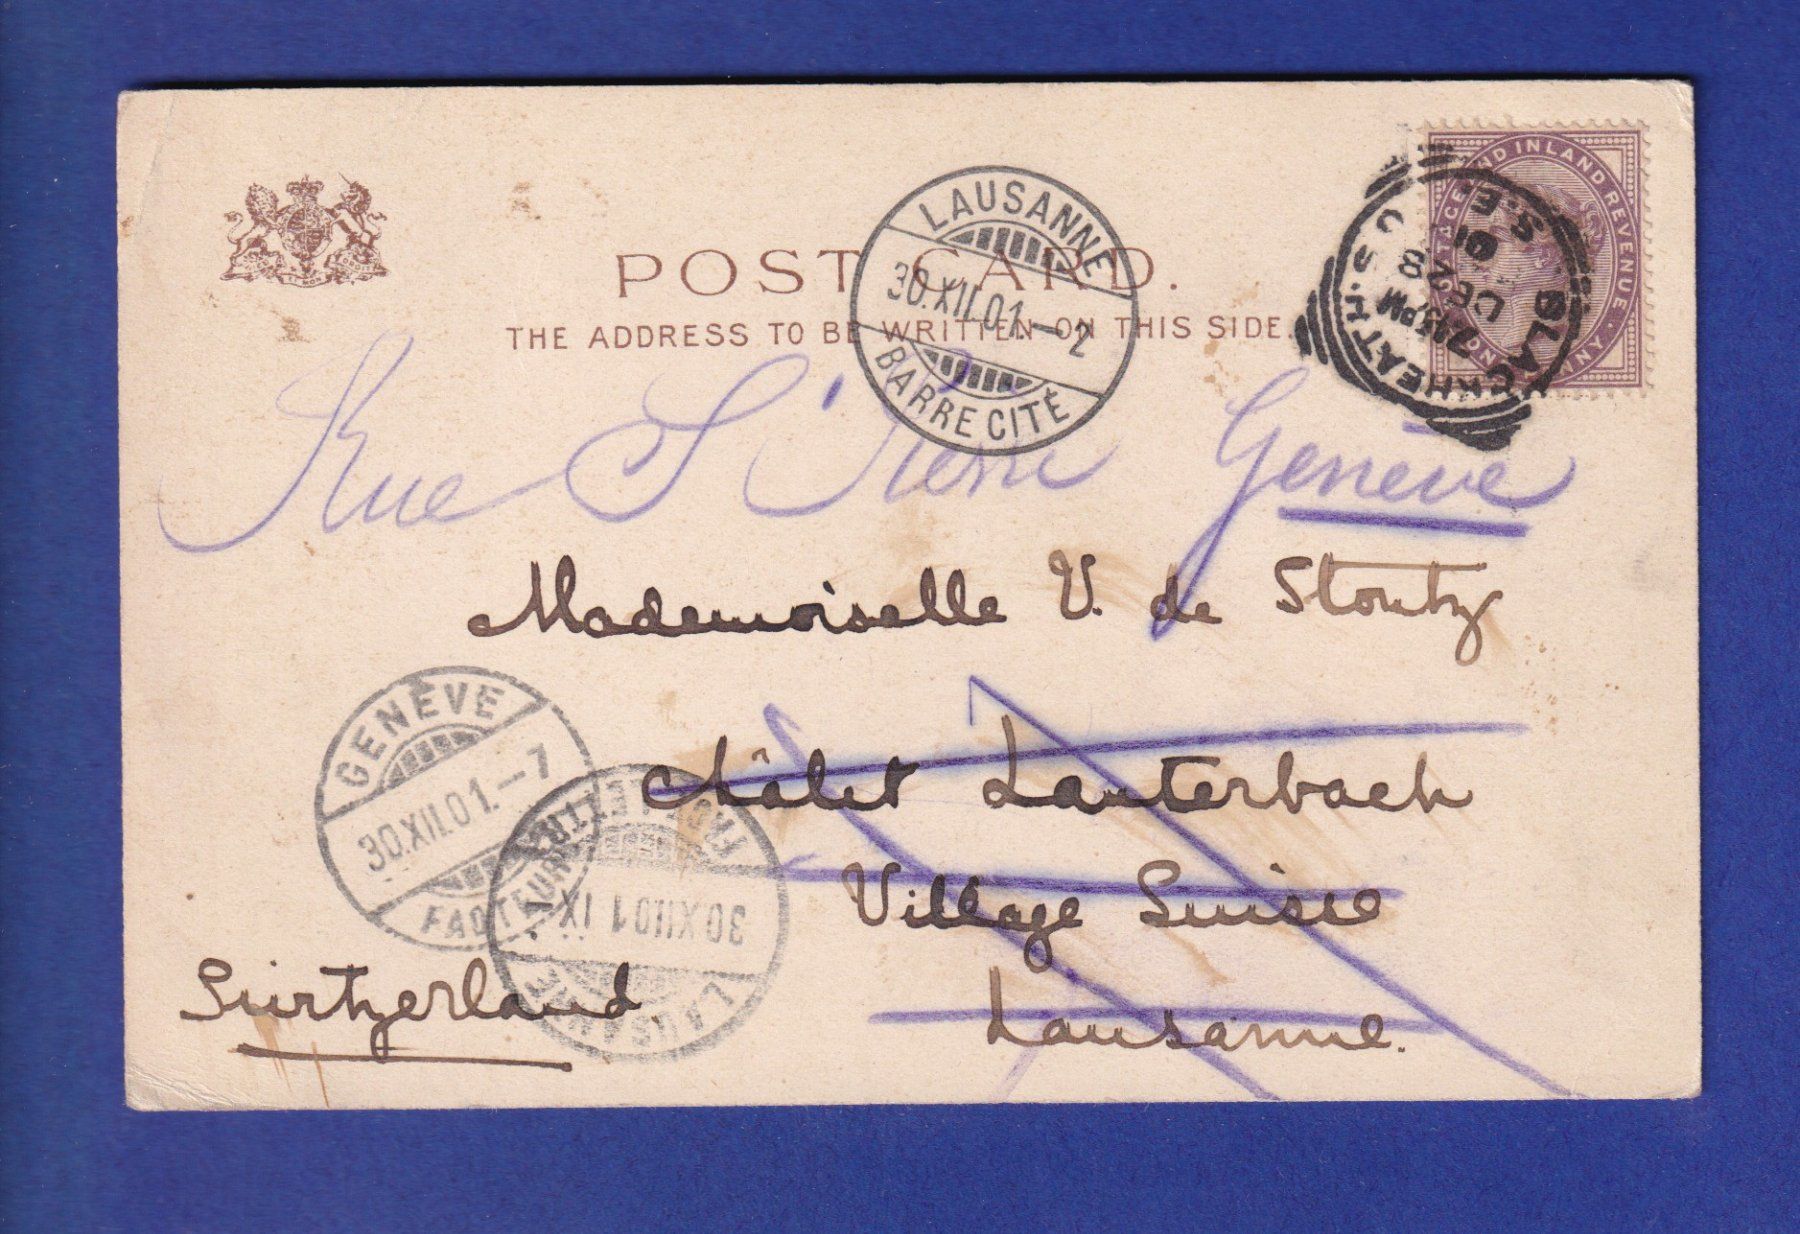 POST CARD.
THE ADDRESS TO BE WRITTEN ON THIS SIDE.
POSTAGE AND INLAND REVENUE · ONE PENNY
BLACKHEATH
S.E.
7.15 PM
DE 28
01
LAUSANNE
30.XII.01.–2
BARRE CITÉ
Rue St Pierre Genève
Mademoiselle V. de Stoutz
Châlet Lauterbach
Village Suisse
Lausanne.
Switzerland.
GENÈVE
30.XII.01.–7
FACTEURS
LAUSANNE
30.XII.01 IX